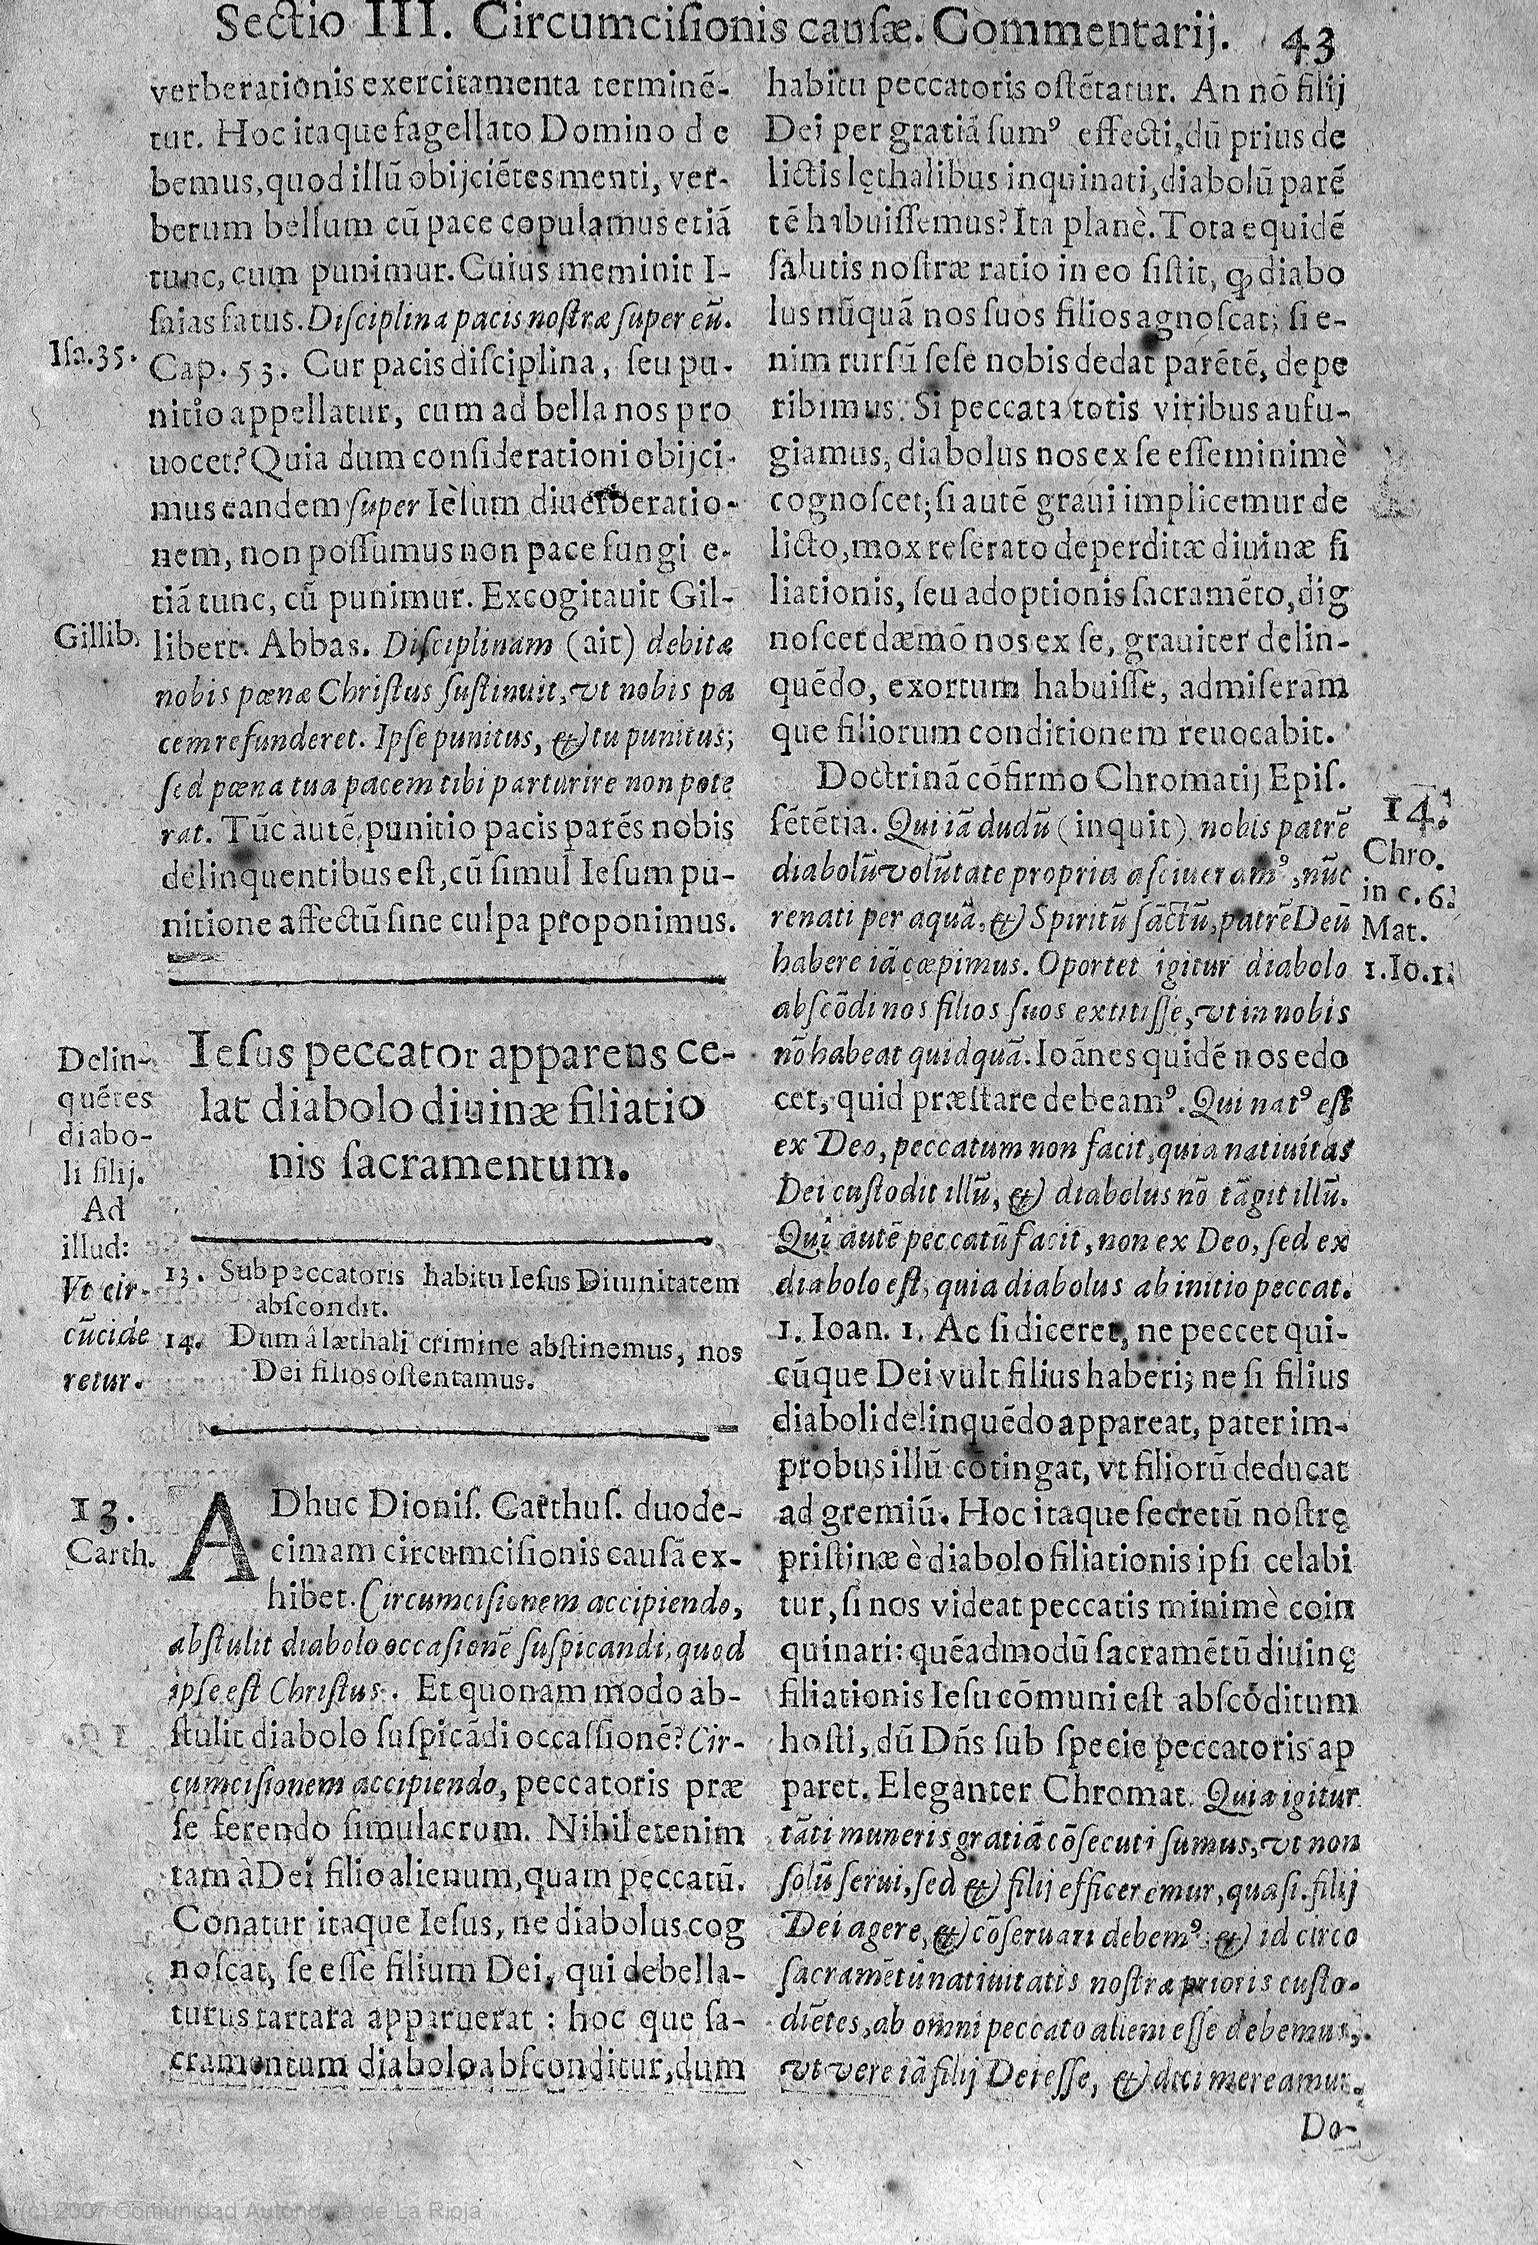 Sectio III. Circumcisionis causæ. Commentarij. 43
verberationis exercitamenta terminē-
tur. Hoc itaque fagellato Domino de
bemus, quod illū obijciētes menti, ver-
berum bellum cū pace copulamus etiā
tunc, cum punimur. Cuius meminit I-
saias satus. Disciplina pacis nostræ super eū.
Isa. 35.
Cap. 53. Cur pacis disciplina, seu pu-
nitio appellatur, cum ad bella nos pro
uocet? Quia dum considerationi obijci-
mus eandem super Iesum diuerberatio-
nem, non possumus non pace fungi e-
tiā tunc, cū punimur. Excogitauit Gil-
Gillib.
libert. Abbas. Disciplinam (ait) debitæ
nobis pœnæ Christus sustinuit, vt nobis pa
cem refunderet. Ipse punitus, & tu punitus;
sed pœna tua pacem tibi parturire non pote
rat. Tūc autē punitio pacis parēs nobis
delinquentibus est, cū simul Iesum pu-
nitione affectū sine culpa proponimus.
Iesus peccator apparens ce-
lat diabolo diuinæ filiatio
nis sacramentum.
Delin-
quētes
diabo-
li filij.
Ad
illud:
Vt cir-
cūcide
retur.
13. Sub peccatoris habitu Iesus Diuinitatem
abscondit.
14. Dum â læthali crimine abstinemus, nos
Dei filios ostentamus.
13.
Carth.
ADhuc Dionis. Carthus. duode-
cimam circumcisionis causā ex-
hibet. Circumcisionem accipiendo,
abstulit diabolo occasionē suspicandi, quod
ipse est Christus. Et quonam modo ab-
stulit diabolo suspicādi occassionē? Cir-
cumcisionem accipiendo, peccatoris præ
se ferendo simulacrum. Nihil etenim
tam à Dei filio alienum, quam peccatū.
Conatur itaque Iesus, ne diabolus cog
noscat, se esse filium Dei, qui debella-
turus tartara apparuerat : hoc que sa-
cramentum diabolo absconditur, dum
habitu peccatoris ostētatur. An nō filij
Dei per gratiā sumꝰ effecti, dū prius de
lictis lęthalibus inquinati, diabolū parē
tē habuissemus? Ita planè. Tota equidē
salutis nostræ ratio in eo sistit, ꝙ diabo
lus nūquā nos suos filios agnoscat; si e-
nim rursū sese nobis dedat parētē, depe
ribimus. Si peccata totis viribus aufu-
giamus, diabolus nos ex se esse minimè
cognoscet; si autē graui implicemur de
licto, mox reserato deperditæ diuinæ fi
liationis, seu adoptionis sacramēto, dig
noscet dæmō nos ex se, grauiter delin-
quēdo, exortum habuisse, admiseram
que filiorum conditionem reuocabit.
Doctrinā cōfirmo Chromatij Epis.
sētētia. Qui iā dudū (inquit) nobis patrē
diabolū volūtate propria asciueramꝰ, nūc
renati per aquā, & Spiritū sāctū, patrē Deū
habere iā cœpimus. Oportet igitur diabolo
abscōdi nos filios suos extitisse, vt in nobis
nō habeat quidquā. Ioānes quidē nos edo
cet, quid præstare debeamꝰ. Qui natꝰ est
ex Deo, peccatum non facit, quia natiuitas
Dei custodit illū, & diabolus nō tāgit illū.
Qui autē peccatū facit, non ex Deo, sed ex
diabolo est, quia diabolus ab initio peccat.
1. Ioan. 1. Ac si diceret, ne peccet qui-
cūque Dei vult filius haberi; ne si filius
diaboli delinquēdo appareat, pater im-
probus illū cōtingat, vt filiorū deducat
ad gremiū. Hoc itaque secretū nostrę
pristinæ è diabolo filiationis ipsi celabi
tur, si nos videat peccatis minimè coin
quinari: quēadmodū sacramētū diuinę
filiationis Iesu cōmuni est abscōditum
hosti, dū Dñs sub specie peccatoris ap
paret. Eleganter Chromat. Quia igitur
tāti muneris gratiā cōsecuti sumus, vt non
solū serui, sed & filij efficeremur, quasi filij
Dei agere, & cōseruari debemꝰ, & id circo
sacramētū natiuitatis nostræ prioris custo-
diētes, ab omni peccato alieni esse debemus,
vt vere iā filij Dei esse, & dici mereamur.
14.
Chro.
in c. 6.
Mat.
1. Io. 1.
Do-
(c) 2007 Comunidad Autónoma de La Rioja